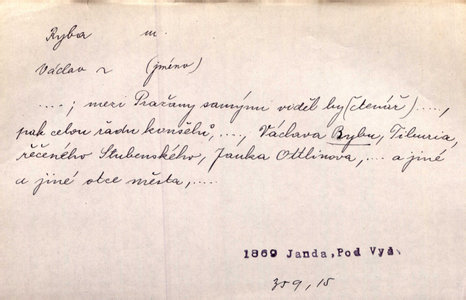 Ryba m.
Václav ~ (jméno)
....; mezi Pražany samými viděl by (čtenář) ....,
pak celou řadu konšelů, ...., Václava Rybu, Tiburia,
řečeného Stubenského, Janka Ottlinova, .... a jiné
a jiné otce města, ....
1869 Janda, Pod Vyš.
359, 15